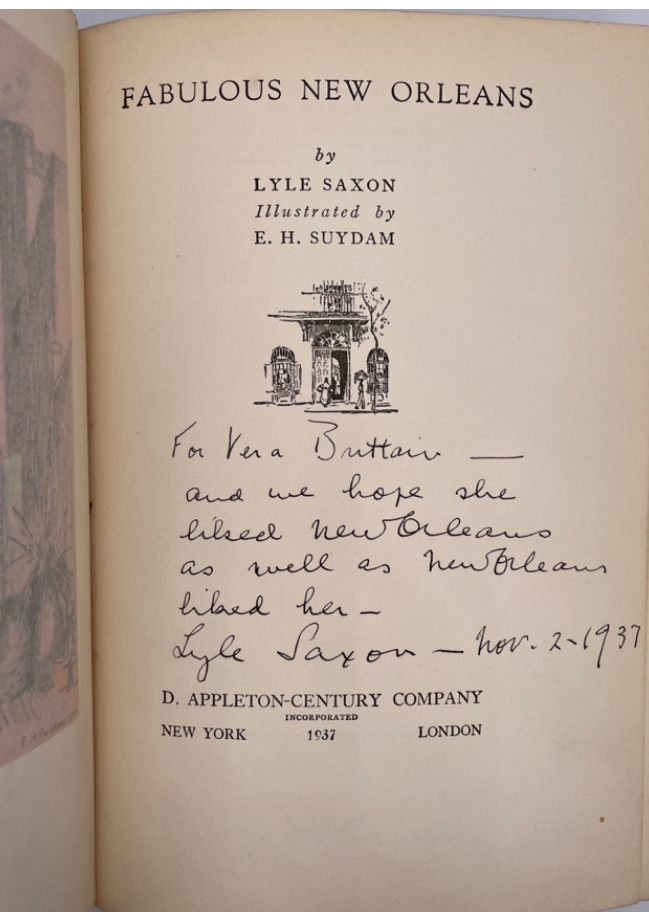 FABULOUS NEW ORLEANS
by
LYLE SAXON
Illustrated by
E. H. SUYDAM
For Vera Brittain —
and we hope she
liked New Orleans
as well as New Orleans
liked her —
Lyle Saxon — Nov. 2 - 1937
D. APPLETON-CENTURY COMPANY
INCORPORATED
NEW YORK 1937 LONDON
E. H. Suydam